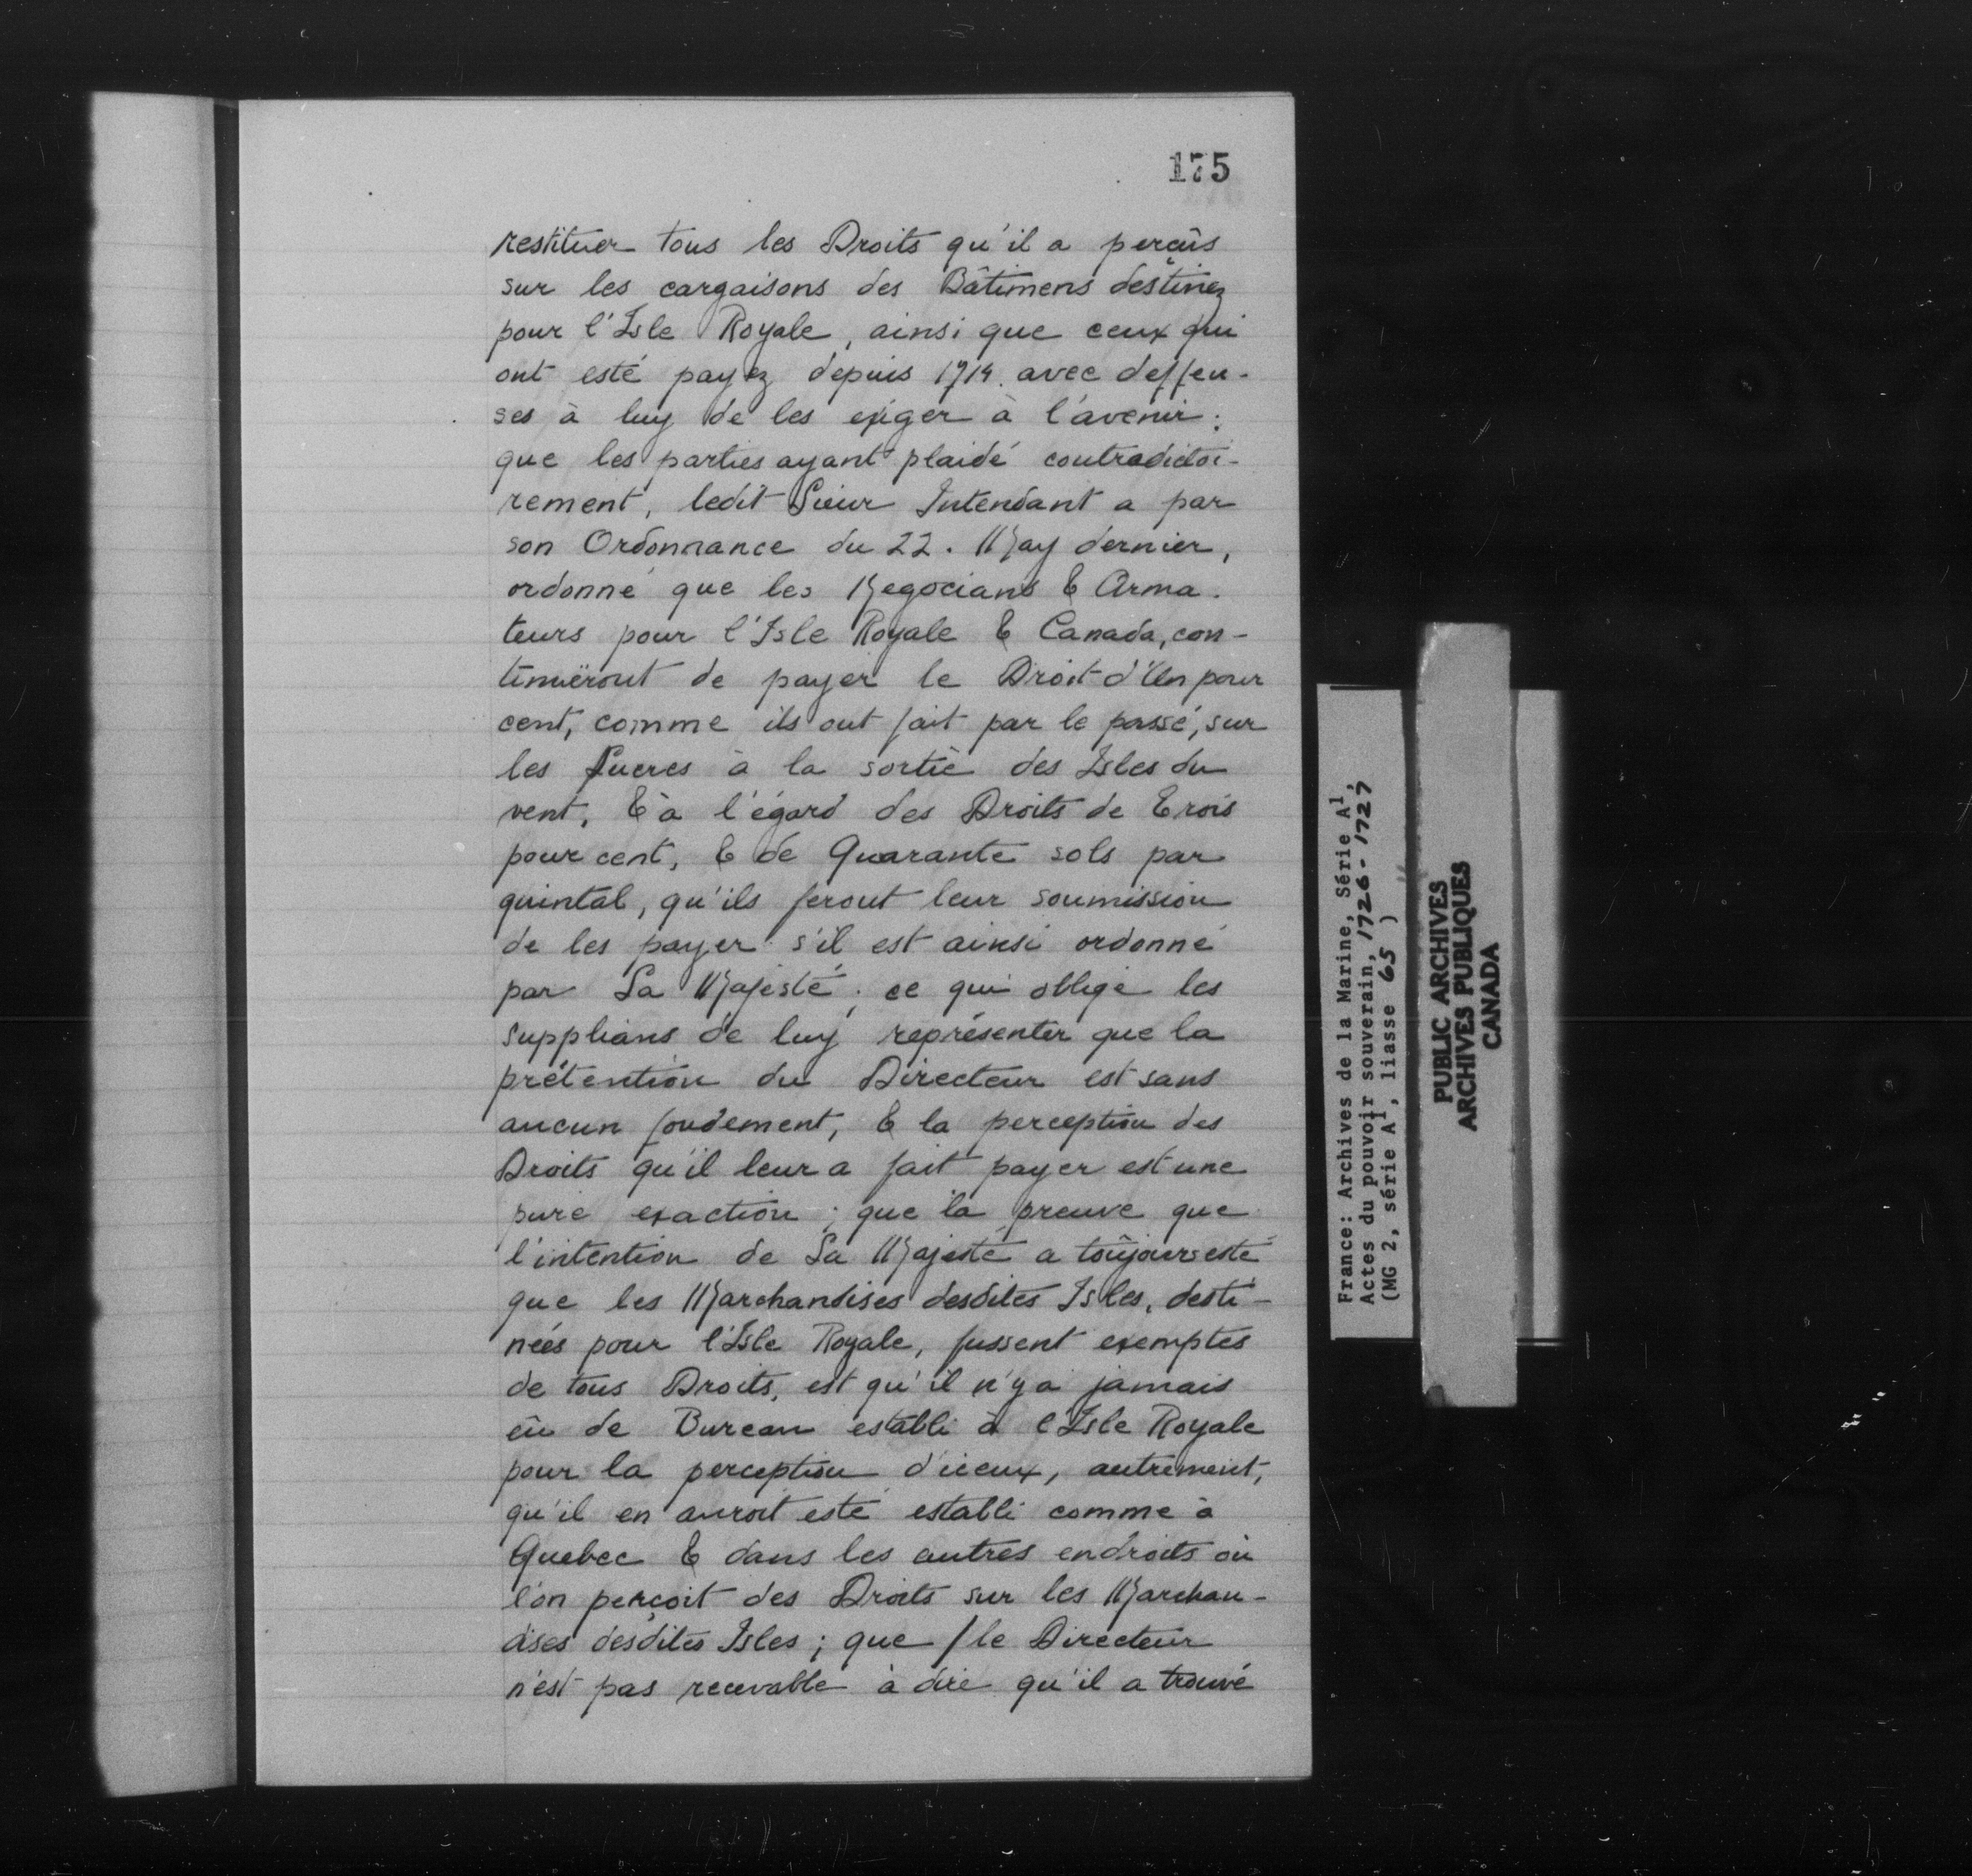 175
restituer tous les Droits qu'il a perçûs
sur les cargaisons des Bâtimens destinez
pour l'Isle Royale, ainsi que ceux qui
ont esté payez depuis 1714. avec deffen-
ses à luy de les exiger à l'avenir;
que les parties ayant plaidé contradictoi-
rement, ledit Sieur Intendant a par
son Ordonnance du 22. May dernier,
ordonné que les Negocians & Arma-
teurs pour l'Isle Royale & Canada, con-
tinuëront de payer le Droit d'Un pour
cent, comme ils ont fait par le passé, sur
les Sucres à la sortie des Isles du
vent, & à l'égard des Droits de Trois
pour cent, & de Quarante sols par
quintal, qu'ils feront leur soumission
de les payer s'il est ainsi ordonné
par Sa Majesté; ce qui oblige les
supplians de luy représenter que la
prétention du Directeur est sans
aucun fondement, & la perception des
Droits qu'il leur a fait payer est une
pure exaction; que la preuve que
l'intention de Sa Majesté a toûjours esté
que les Marchandises desdites Isles, desti-
nées pour l'Isle Royale, fussent exemptes
de tous Droits, est qu'il n'y a jamais
eû de Bureau establi à l'Isle Royale
pour la perception d'iceux, autrement,
qu'il en auroit esté establi comme à
Quebec & dans les autres endroits où
l'on perçoit des Droits sur les Marchan-
dises desdites Isles; que / le Directeur
n'est pas recevable à dire qu'il a trouvé
France: Archives de la Marine, Série A1,
Actes du pouvoir souverain, 1726-1727
(MG 2, série A1, liasse 65 )
PUBLIC ARCHIVES
ARCHIVES PUBLIQUES
CANADA